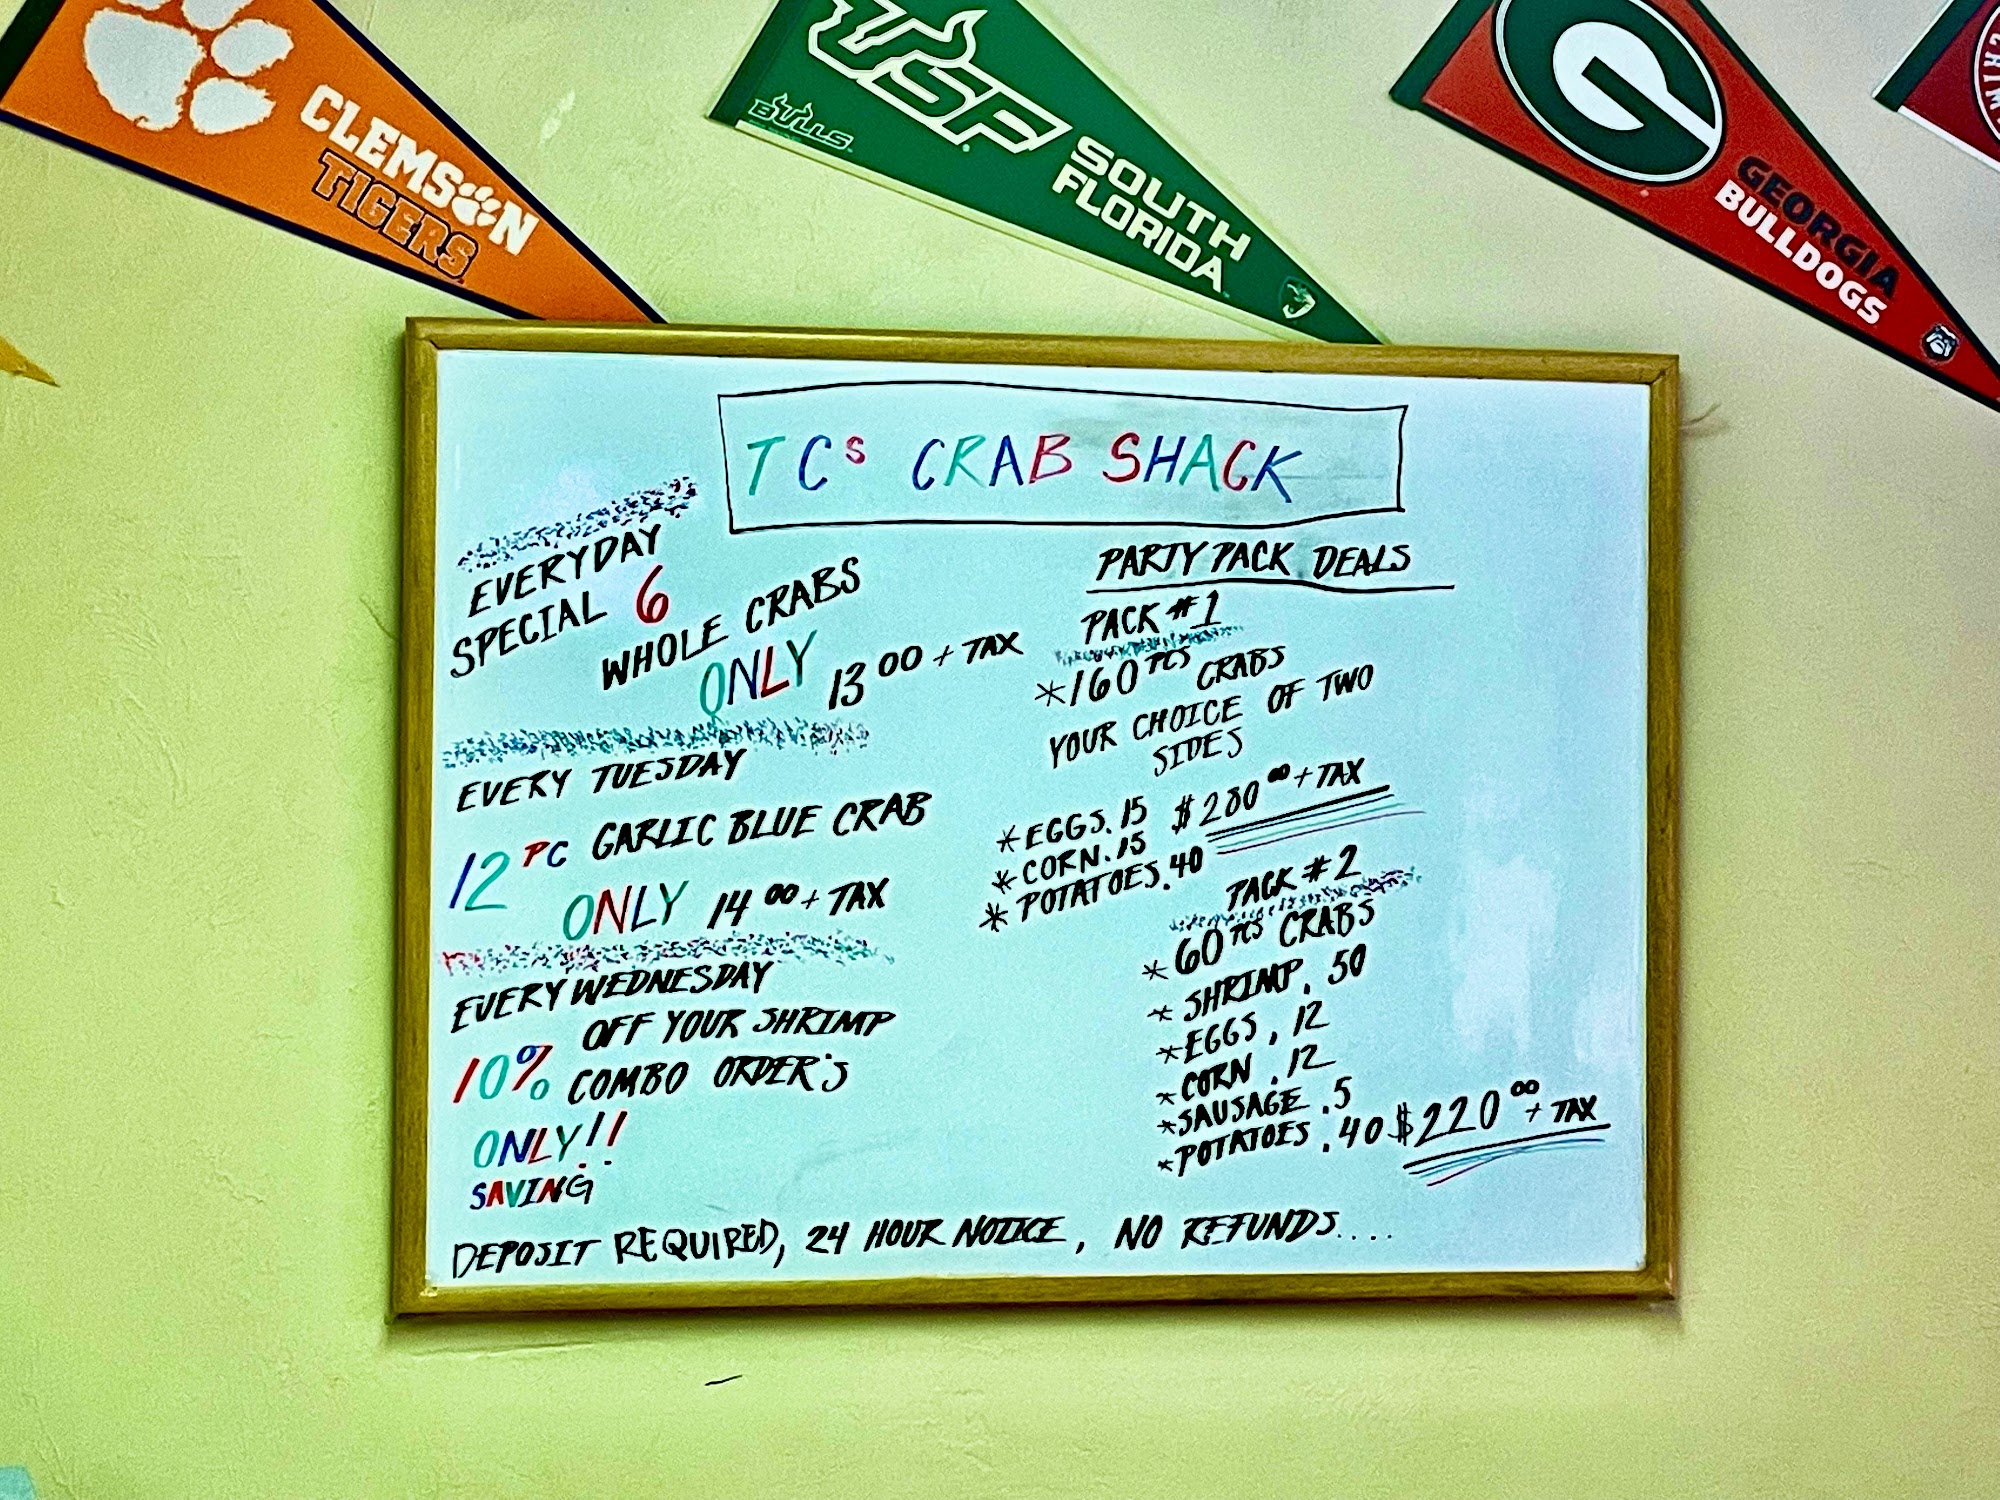 CLEMSON
TIGERS
USF
BULLS
SOUTH
FLORIDA
G
GEORGIA
BULLDOGS
TCs CRAB SHACK
EVERYDAY
SPECIAL 6
WHOLE CRABS
ONLY 13 00 + TAX
EVERY TUESDAY
12 PC GARLIC BLUE CRAB
ONLY 14 00 + TAX
EVERY WEDNESDAY
10% OFF YOUR SHRIMP
COMBO ORDER'S
ONLY!!
SAVING
PARTY PACK DEALS
PACK #1
*160 PCS CRABS
YOUR CHOICE OF TWO
SIDES
$280 00 + TAX
* EGGS. 15
* CORN. 15
* POTATOES. 40
PACK #2
* 60 PCS CRABS
* SHRIMP. 50
* EGGS, 12
* CORN. 12
* SAUSAGE. 5
* POTATOES. 40 $220 00 + TAX
DEPOSIT REQUIRED, 24 HOUR NOTICE, NO REFUNDS....